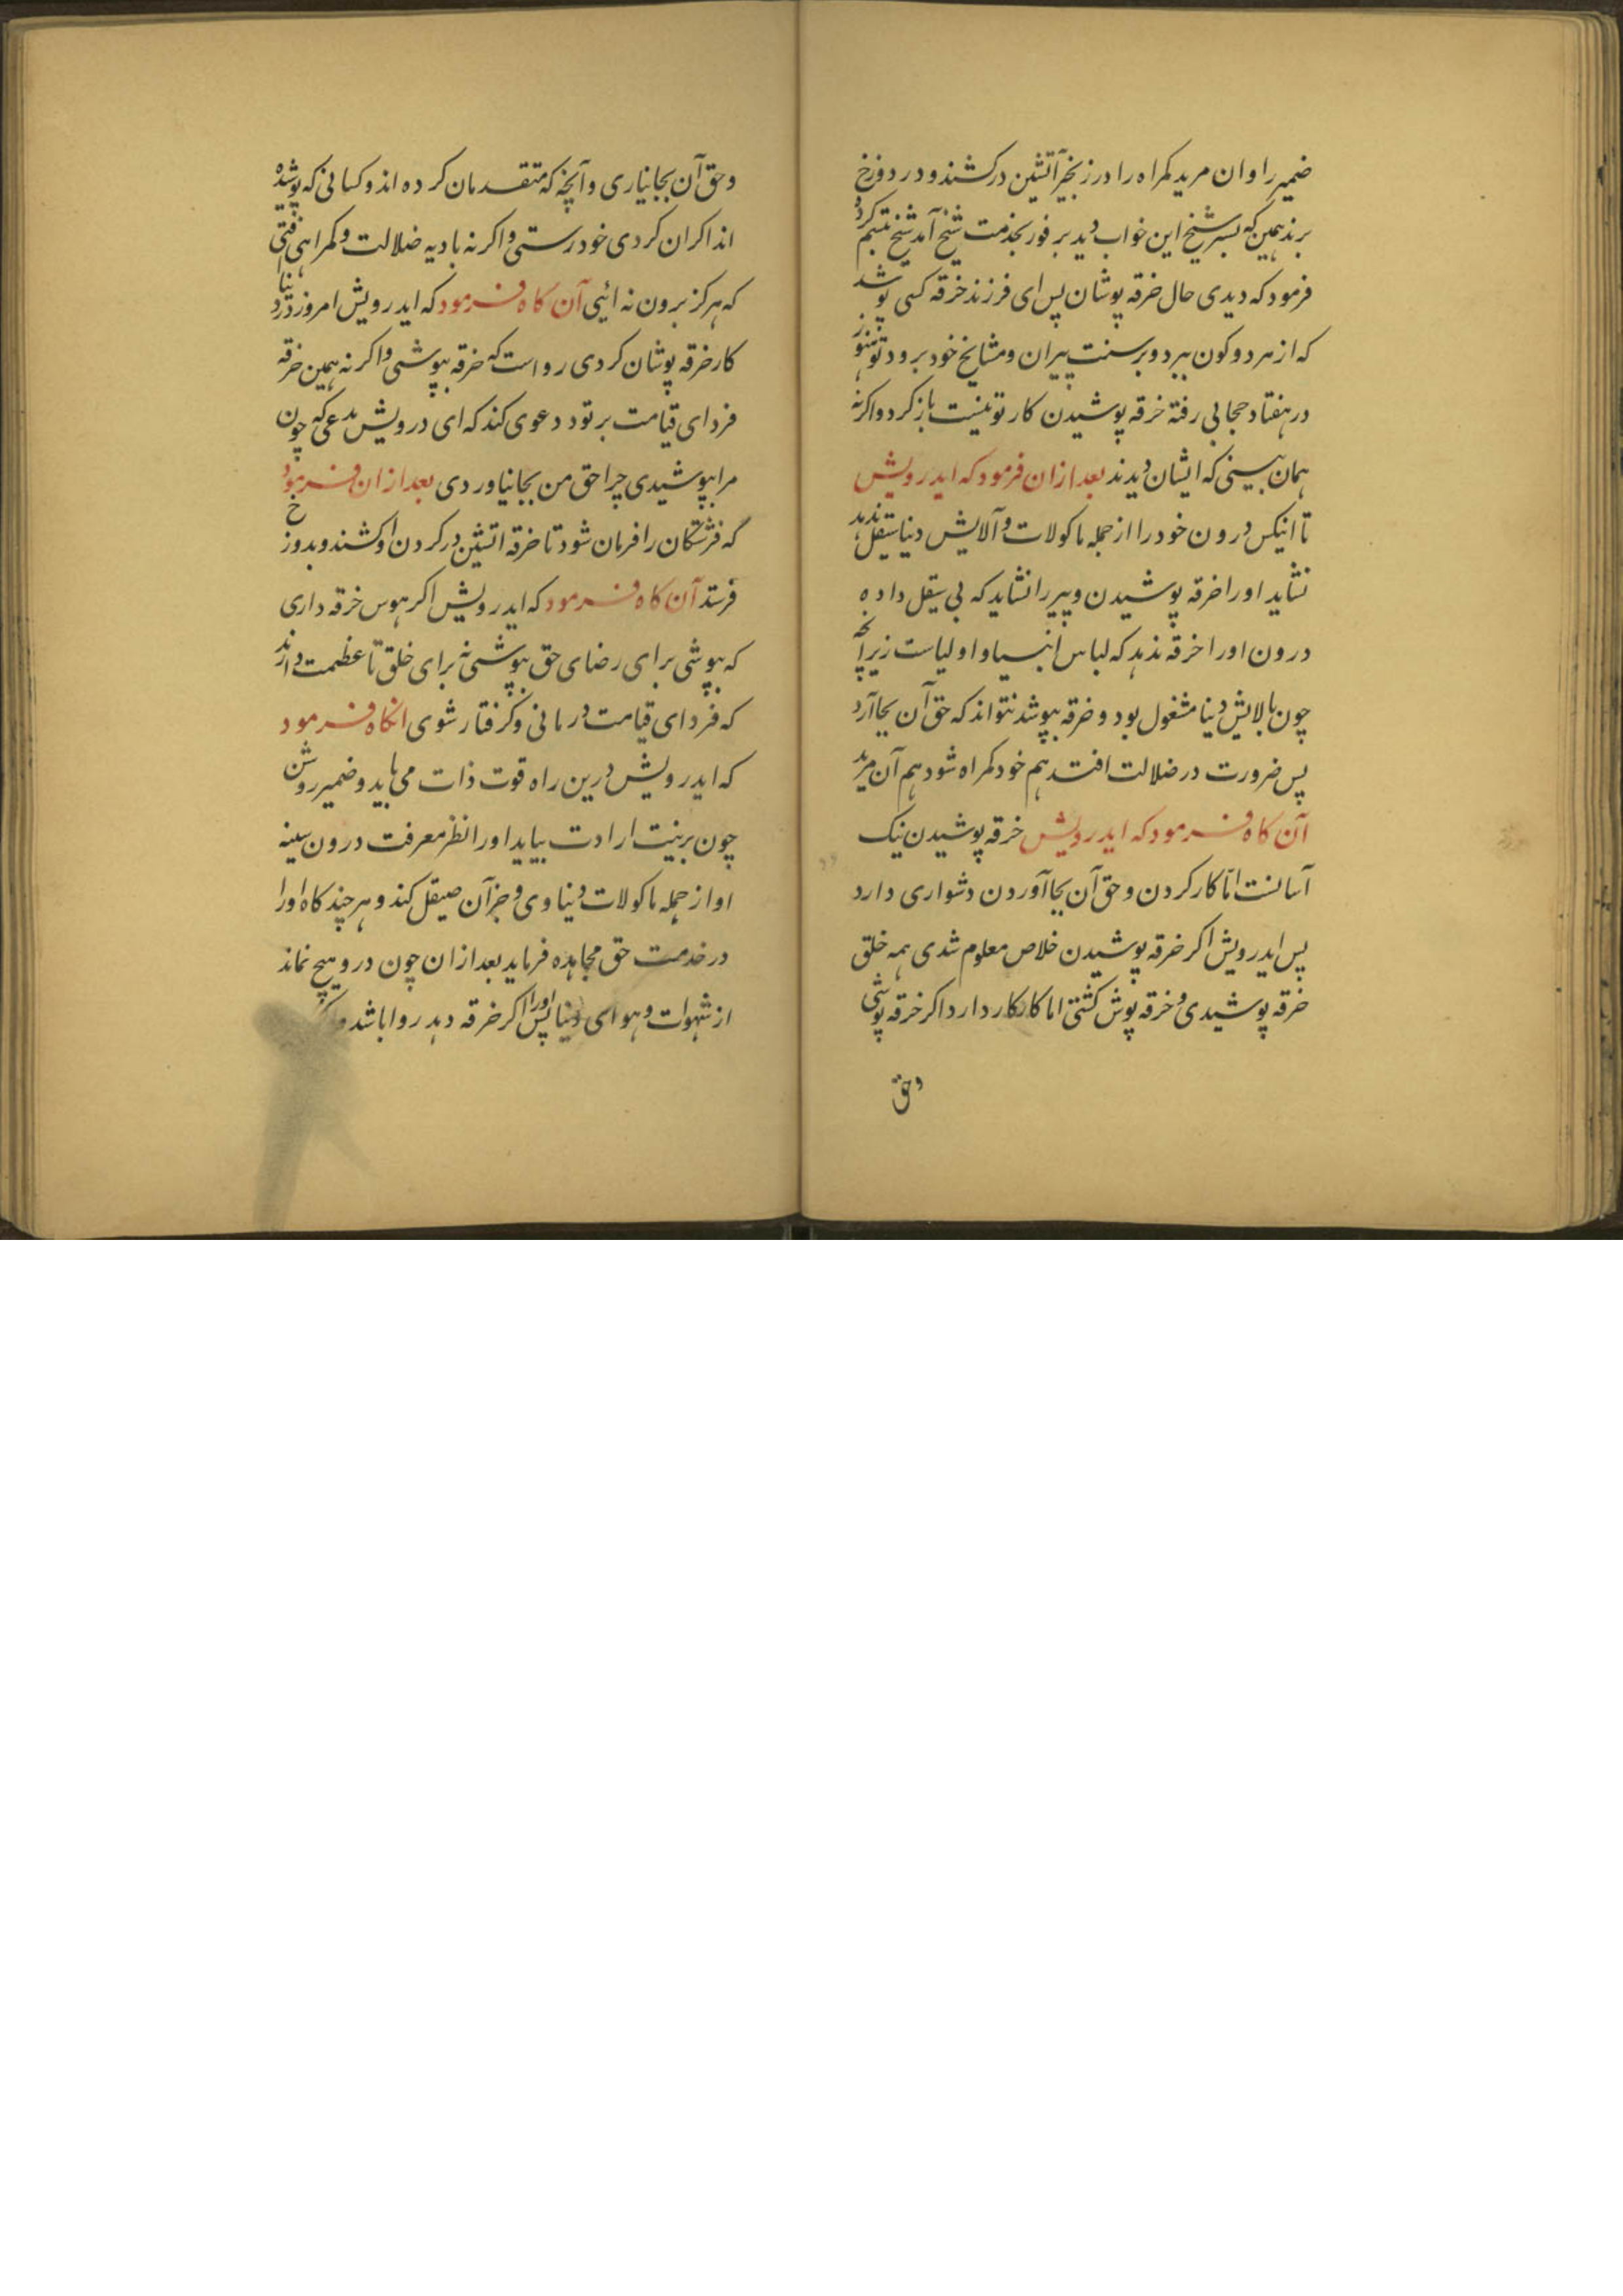 ضمیر را و ان مرید کمراه را در زنجیر آتشین درکشند و در دوزخ
برند همین که پسر شیخ این خواب دید بر فور بخدمت شیخ آمد شیخ تبسم کرد و
فرمود که دیدی حال خرقه پوشان پس ای فرزند خرقه کسی پوشد
که از هر دو کون ببرد و بر سنت پیران و مشایخ خود برود تو هنوز
در هفتاد حجابی رفته خرقه پوشیدن کار تو نیست باز کرد و اکرنه
همان بینی که ایشان دیدند بعد ازان فرمود که ایدرویش
تا انیکس درون خود را از جمله ماکولات و آلایش دنیا سیقل ندهد
نشاید او را خرقه پوشیدن و پیر را نشاید که بی سیقل داده
درون او را خرقه ندهد که لباس انبیا و اولیاست زیراچه
چون بالایش دنیا مشغول بود و خرقه بپوشد نتواند که حق آن بجا آرد
پس ضرورت در ضلالت افتد هم خود کمراه شود هم آن مرید
آن کاه فرمود که ایدرویش خرقه پوشیدن نیک
آسانست اما کار کردن و حق آن بجا آوردن دشواری دارد
پس ایدرویش اکر خرقه پوشیدن خلاص معلوم شدی همه خلق
خرقه پوشیدی و خرقه پوش کشتی اما کار کار دارد اکر خرقه پوشی
و حق
و حق آن بجا نیاری و آنچه که متقدمان کرده اند و کسانی که پوشیده
اند اکر ان کردی خود رستی و اکر نه بادیه ضلالت و کمراهی افتی
که هرکز برون نه ائی آن کاه فرمود که ایدرویش امروز در دنیا
کار خرقه پوشان کردی رواست که خرقه بپوشی و اکر نه همین خرقه
فردای قیامت بر تو دعوی کند که ای درویش مدعی که چون
مرا بپوشیدی چرا حق من بجا نیاوردی بعد ازان فرمود
که فرشتکان را فرمان شود تا خرقه اتشین در کردن او کشند و بدوزخ
فرستد آن کاه فرمود که ایدرویش اکر هوس خرقه داری
که بپوشی برای رضای حق بپوشی نه برای خلق تا عظمت دارند
که فردای قیامت در مانی و کرفتار شوی انکاه فرمود
که ایدرویش درین راه قوت ذات می باید و ضمیر روشن
چون بر نیت ارادت بیاید او را نظر معرفت درون سینه
او از جمله ماکولات دنیاوی و جز آن صیقل کند و هر چند کاه او را
در خدمت حق مجاهده فرماید بعد ازان چون در و هیچ نماند
از شهوات و هوای دنیا پس او را اکر خرقه دهد روا باشد